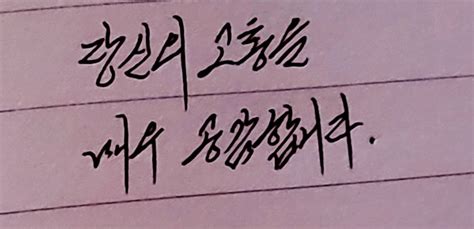 당신의 고충을
매우 공감합니다.